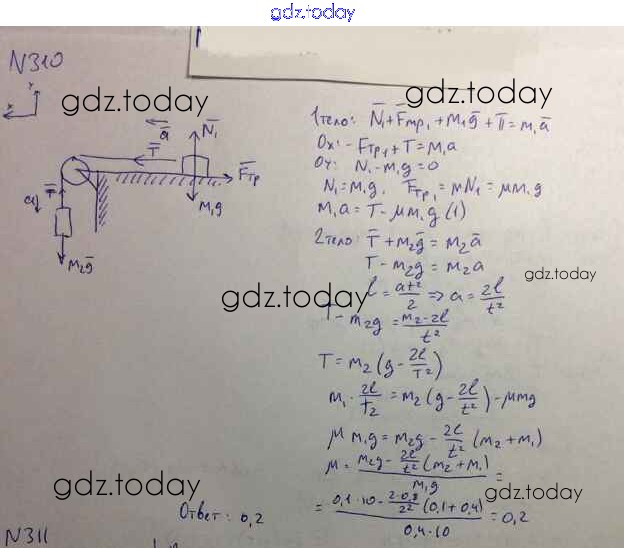 gdz.today
N310
gdz.today
gdz.today
y
x
a̅
N̅₁
T̅
F̅тр
a↓
T̅
m₁g
m₂g̅
1 тело: N̅₁ + F̅тр₁ + m₁g̅ + T̅ = m₁a̅
Ox: -Fтр₁ + T = m₁a
Oy: N₁ - m₁g = 0
N₁ = m₁g, F̅тр₁ = μN₁ = μm₁g
m₁a = T - μm₁g (1)
2 тело: T̅ + m₂g̅ = m₂a̅
T - m₂g = m₂a
gdz.today
gdz.today
l = at²/2 ⇒ a = 2l/t²
T - m₂g = m₂-2l/t²
T = m₂(g - 2l/T²)
m₁ · 2l/t₂ = m₂(g - 2l/t²) - μmg
μ m₁g = m₂g - 2l/t² (m₂ + m₁)
μ = m₂g - 2l/t² (m₂ + m₁) / m₁g =
gdz.today
gdz.today
= 0,1 · 10 - 2·0,8/2² (0,1 + 0,4) / 0,4 · 10 = 0,2
Ответ: 0,2
N311